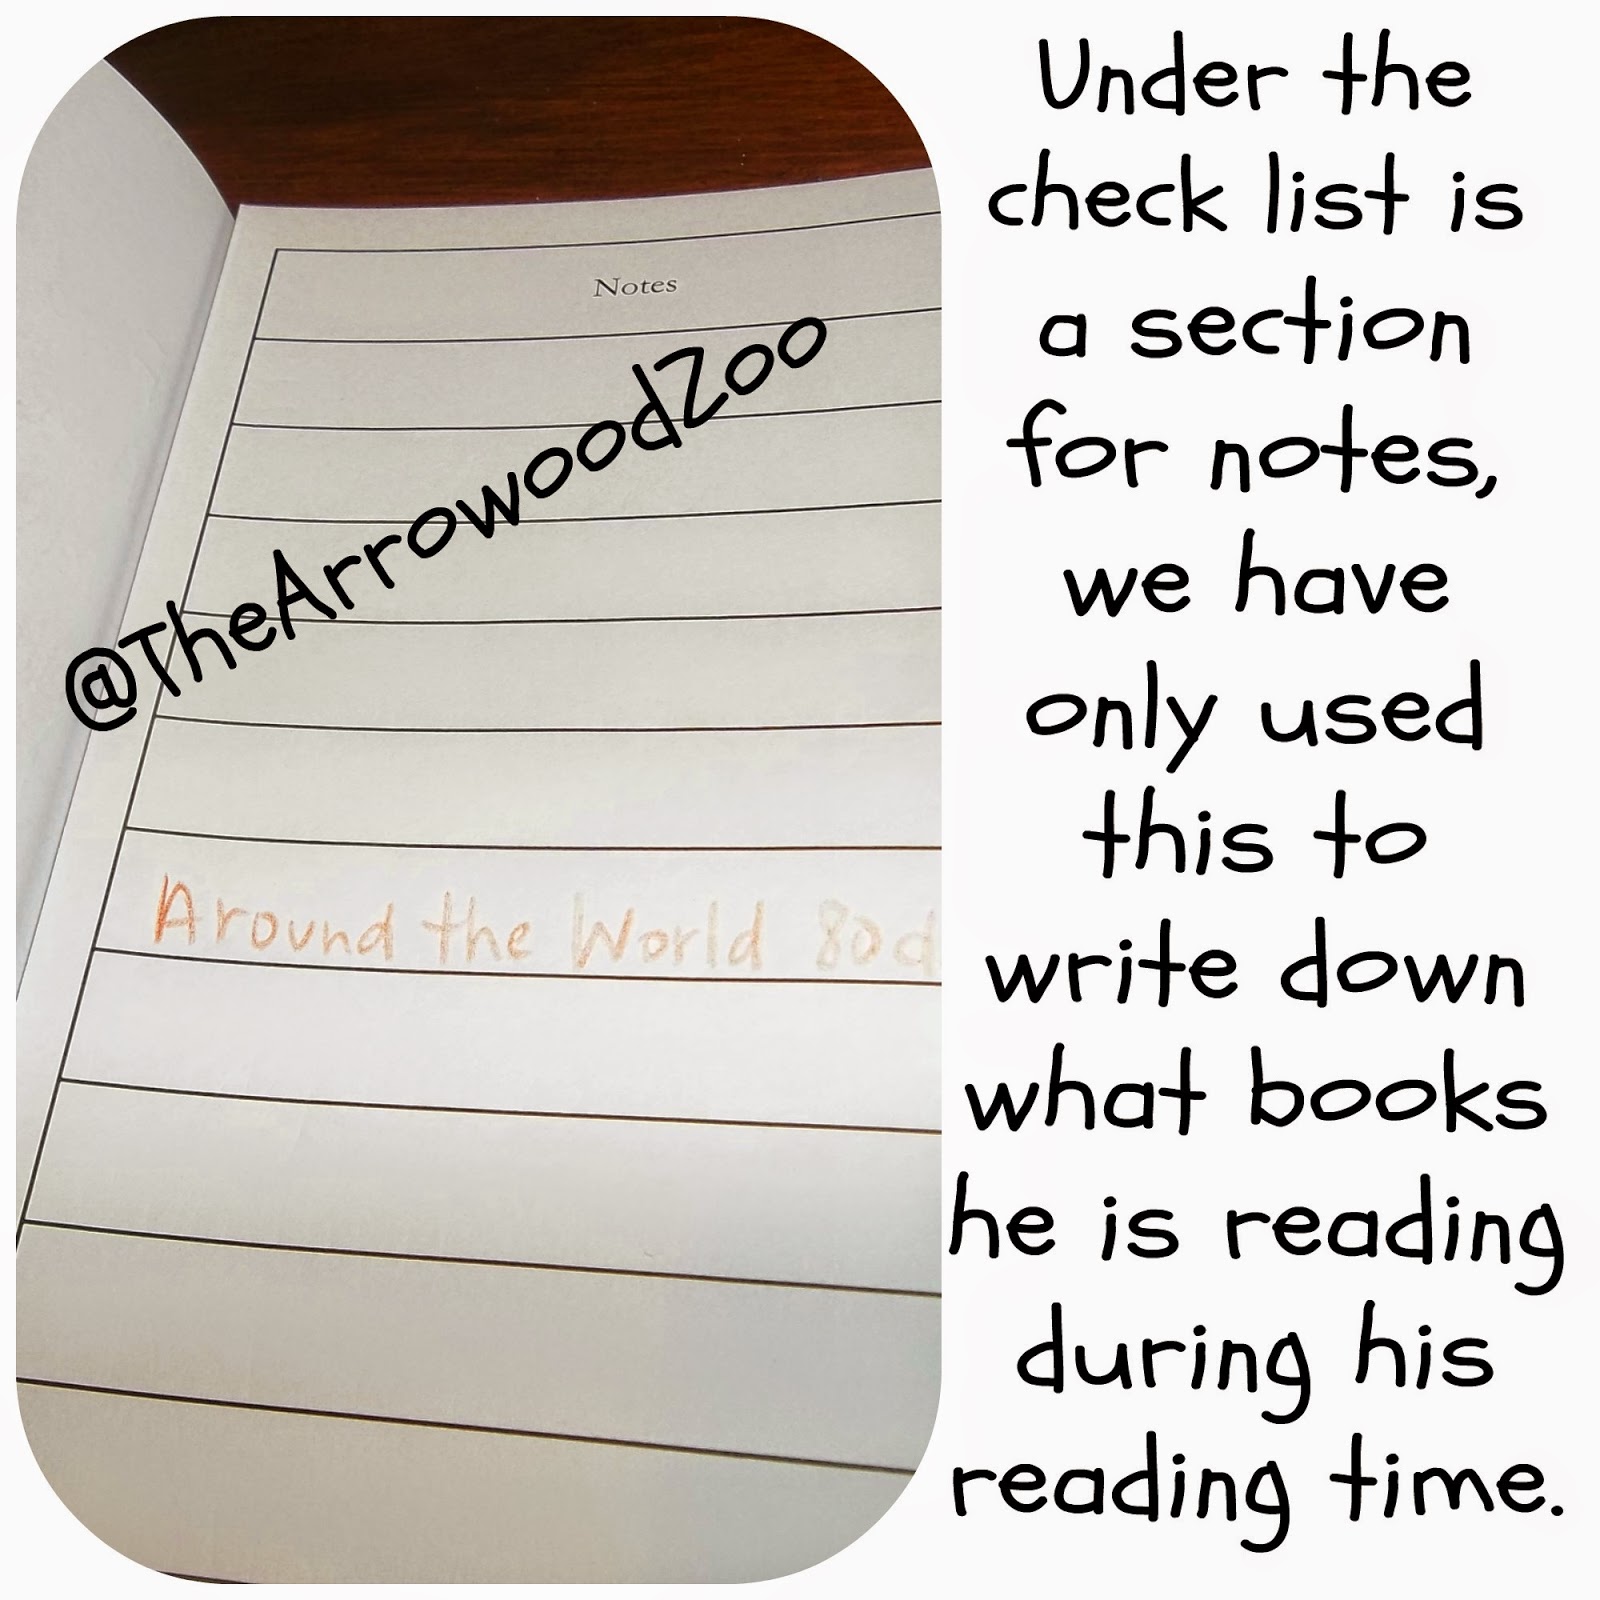 Notes
@TheArrowoodZoo
Around the World 80d
Under the
check list is
a section
for notes,
we have
only used
this to
write down
what books
he is reading
during his
reading time.